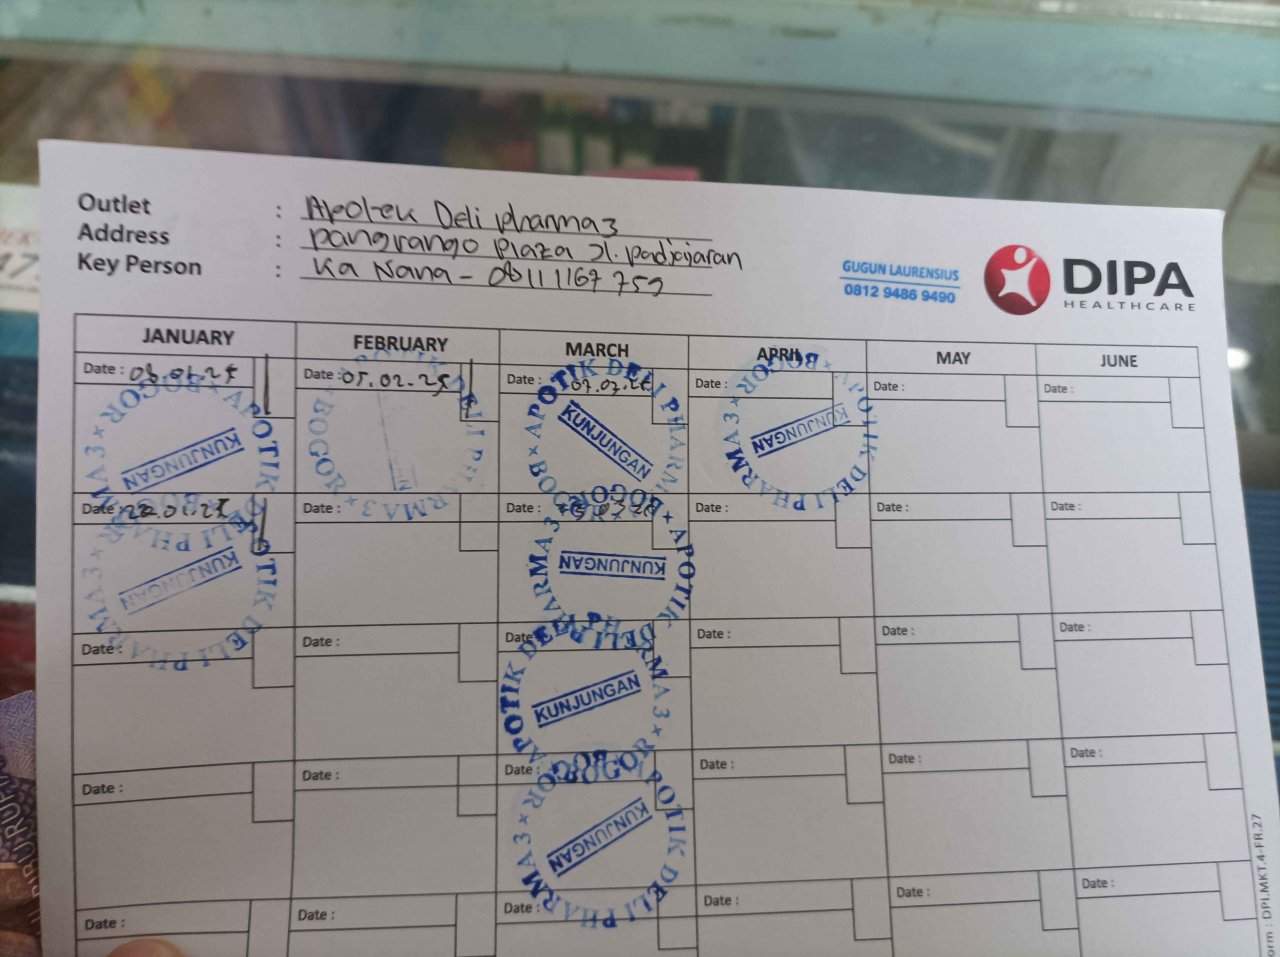 Outlet : Apotek Deli pharma 3
Address : pangrango plaza Jl. padjajaran
Key Person : Ka Nana -
GUGUN LAURENSIUS
0812 9486 9490
DIPA
HEALTHCARE
JANUARY FEBRUARY MARCH APRIL MAY JUNE
Date : 08.01.25 Date : 05.02.25 Date : Date : Date : Date :
APOTIK DELI PHARMA 3 × BOGOR ×
KUNJUNGAN
APOTIK DELI PHARMA 3 × BOGOR ×
APOTIK DELI PHARMA 3 × BOGOR ×
KUNJUNGAN
APOTIK DELI PHARMA 3 × BOGOR ×
KUNJUNGAN
Date : 22.01.25 Date : Date : Date : Date : Date :
APOTIK DELI PHARMA 3 × BOGOR ×
KUNJUNGAN
APOTIK DELI PHARMA 3 × BOGOR ×
KUNJUNGAN
Date : Date : Date : Date : Date : Date :
APOTIK DELI PHARMA 3 × BOGOR ×
KUNJUNGAN
Date : Date : Date : Date : Date : Date :
APOTIK DELI PHARMA 3 × BOGOR ×
KUNJUNGAN
Date : Date : Date : Date : Date : Date :
orm : DPI.MKT.4-FR.27